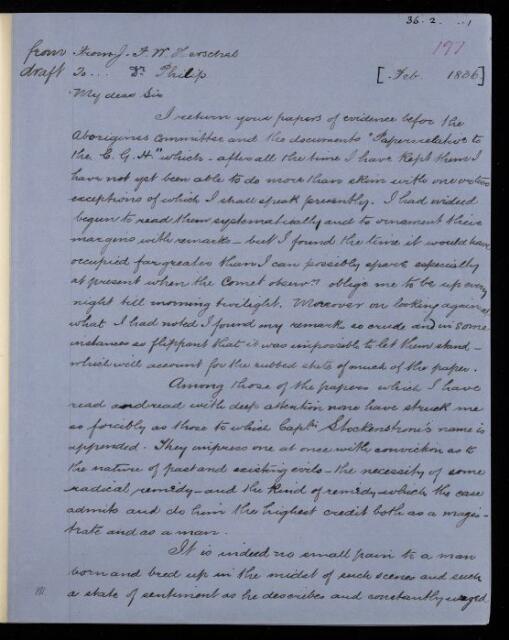 36. 2. ..1
197
from From J. F. W. Herschel
draft To... Dr. Philip [Feb. 1836]
My dear Sir
I return your papers of evidence before the
Aborigines Committee and the documents "Papers relative to
the C. G. H" which - after all the time I have kept them I
have not yet been able to do more than skim with one or two
exceptions of which I shall speak presently. I had indeed
begun to read them systematically and to ornament their
margins with remarks - but I found the time it would have
occupied far greater than I can possibly spare especially
at present when the Comet observns oblige me to be up every
night till morning twilight. Moreover on looking again at
what I had noted I found my remarks so crude and in some
instances so flippant that it was impossible to let them stand -
which will account for the rubbed state of much of the paper.
Among those of the papers which I have
read and read with deep attention none have struck me
so forcibly as those to which Captn Stockenstrom's name is
appended. They impress one at once with conviction as to
the nature of past and existing evils - the necessity of some
radical remedy - and the kind of remedy which the case
admits and do him the highest credit both as a magis-
trate and as a man.
It is indeed no small pain to a man
born and bred up in the midst of such scenes and such
a state of sentiment as he describes and constantly urged